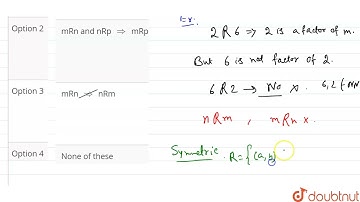 Ex.
2 R 6 ⇒ 2 is a factor of m.
Option 2
mRn and nRp ⇒ mRp
But 6 is not factor of 2.
6 R 2 → No x.
Option 3
mRn ⇒ nRm
nRm , mRn x.
Option 4
None of these
Symmetric. R = {(a, b)
doubtnut